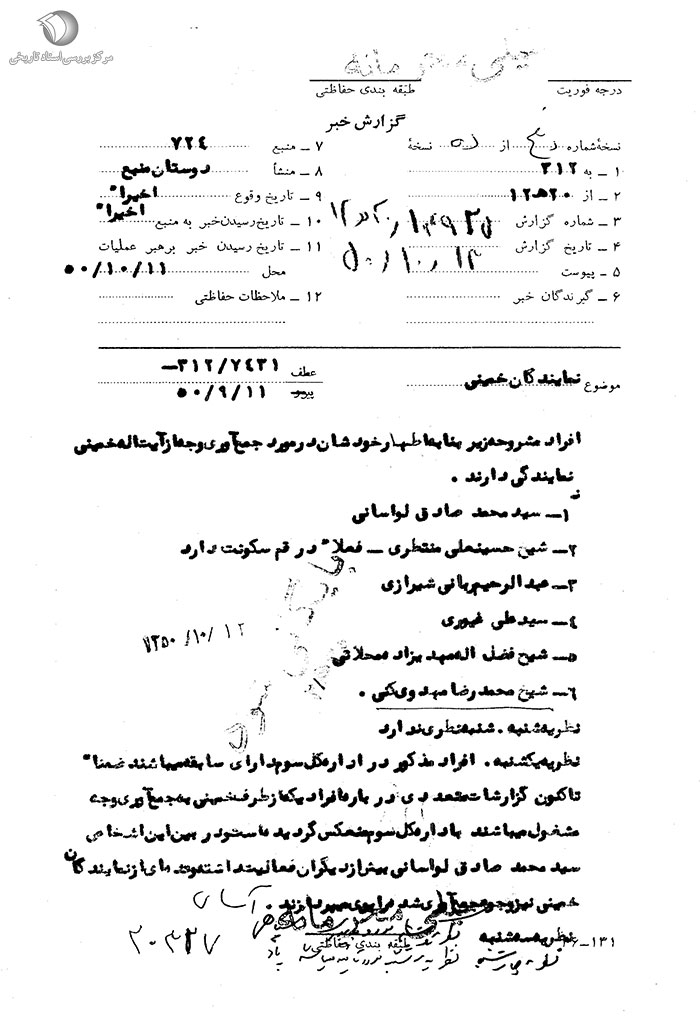 مرکز بررسی اسناد تاریخی
خیلی محرمانه
درجه فوریت
طبقه بندی حفاظتی
گزارش خبر
نسخهٔ شماره از نسخهٔ
۱ – به ۳۱۲
۲ – از ۲۰ه۱۲
۳ – شماره گزارش
۴ – تاریخ گزارش
۵ – پیوست
۶ – گیرندگان خبر
۷ – منبع ۷۲۴
۸ – منشأ دوستان منبع
۹ – تاریخ وقوع اخیراً
۱۰ – تاریخ رسیدن خبر به منبع اخیراً
۱۱ – تاریخ رسیدن خبر برهبر عملیات
محل ۵۰/۱۰/۱۱
۱۲ – ملاحظات حفاظتی
موضوع نمایندگان خمینی
عطف ۳۱۲/۷۴۳۱–
پیرو ۵۰/۹/۱۱
افراد مشروحه زیر بنا به اظهار خودشان در مورد جمع آوری وجه از آیت اله خمینی
نمایندگی دارند .
۱– سید محمد صادق لواسانی
۲– شیخ حسینعلی منتظری – فعلاً در قم سکونت دارد
۳– عبدالرحیم ربانی شیرازی
۴– سید علی غیوری
۵– شیخ فضل اله مهدیزاد محلاتی
۶– شیخ محمد رضا مهدوی کنی .
بایگانی شود
نظریه شنبه . شنبه نظری ندارد
نظریه یکشنبه . افراد مذکور در اداره کل سوم دارای سابقه میباشند ضمناً
تاکنون گزارشات متعددی در باره افرادیکه از طرف خمینی به جمع آوری وجه
مشغول میباشند باداره کل سوم منعکس گردیده است و در بین این اشخاص
سید محمد صادق لواسانی بیش از دیگران فعالیت داشته و عده ای از نمایندگان
خمینی نیز وجوه جمع آوری شده را بوی میپردازند .
نظریه سه شنبه
طبقه بندی حفاظتی
۳۶–۱۳۱
۲۰۳۲۷